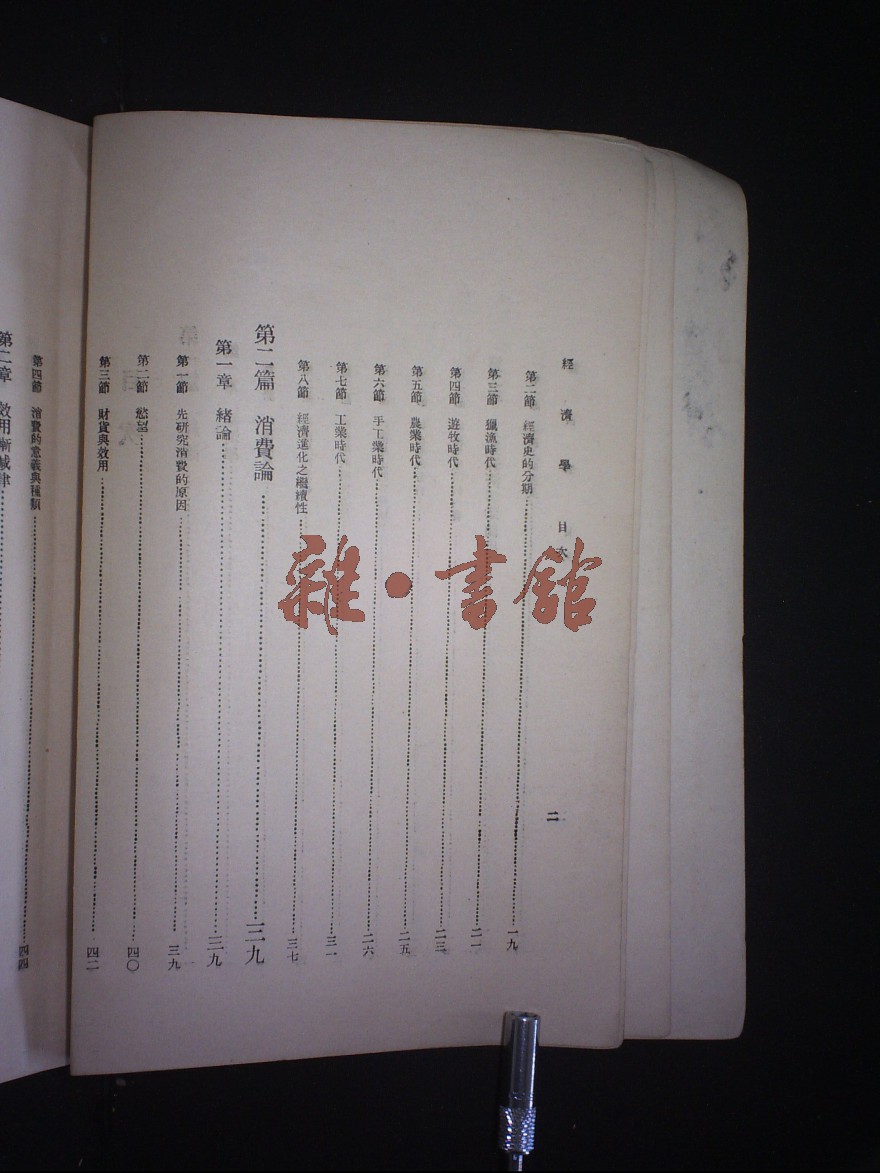 經濟學 目次
二
第二節 經濟史的分期 一九
第三節 獵漁時代 二一
第四節 遊牧時代 二三
第五節 農業時代 二五
第六節 手工業時代 二六
第七節 工業時代 三一
第八節 經濟進化之繼續性 三七
第二篇 消費論 三九
第一章 緒論 三九
第一節 先研究消費的原因 三九
第二節 慾望 四〇
第三節 財貨與效用 四二
第四節 消費的意義與種類 四四
第二章 效用漸減律
雜·書館